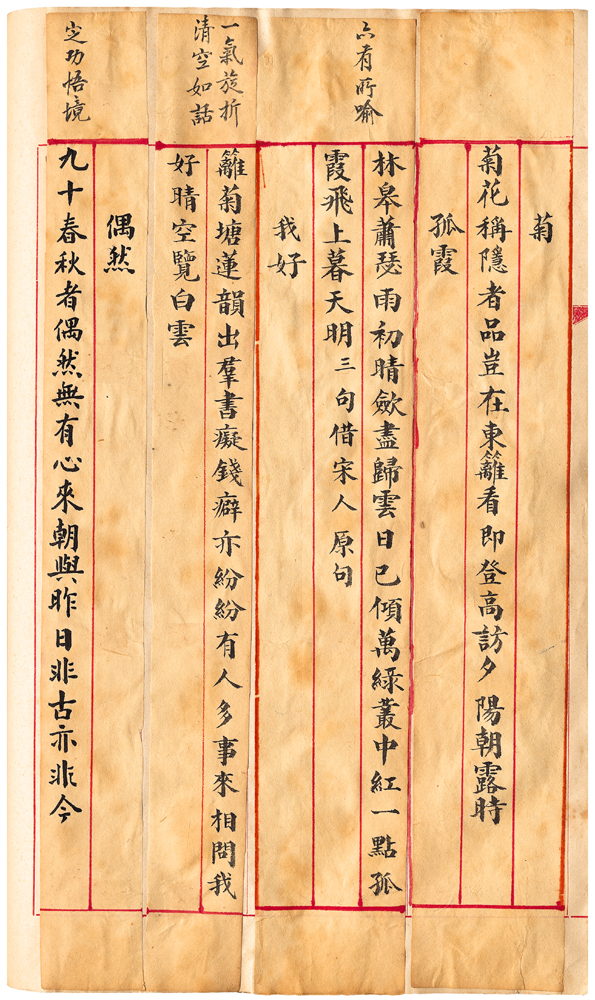 菊
菊花稱隱者品豈在東籬看即登高訪夕陽朝露時
孤霞
亦有所喻
林皋蕭瑟雨初晴歛盡歸雲日已傾萬綠叢中紅一點孤
霞飛上暮天明三句借宋人原句
我好
一氣旋折
清空如話
籬菊塘蓮韻出羣書癡錢癖亦紛紛有人多事來相問我
好晴空覽白雲
偶然
定功悟境
九十春秋者偶然無有心來朝與昨日非古亦非今